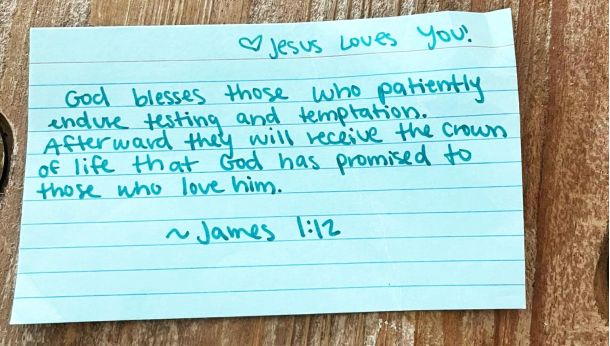 ♡ Jesus Loves You!
God blesses those who patiently
endure testing and temptation.
Afterward they will receive the crown
of life that God has promised to
those who love him.
~ James 1:12